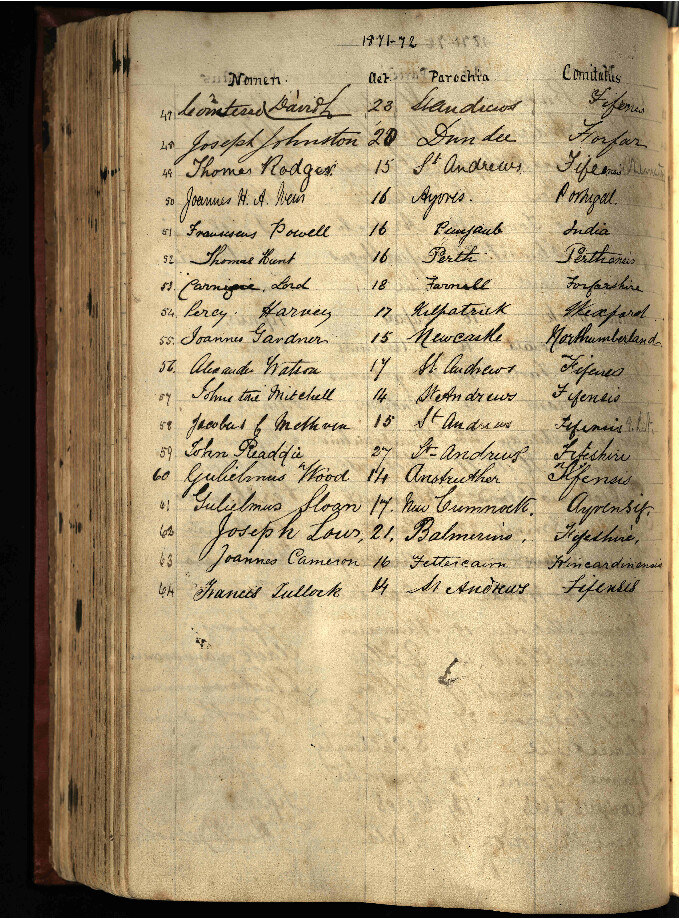 1871-72
Nomen. Aet. Parochia Comitatus
47 David 23 St Andrews Fifensis
48 Joseph Johnston 20 Dundee Forfar
49 Thomas Rodger 15 St Andrews
50 Joannes H. A. 16 Portugal
51 Franciscus Powell 16 Punjaub India
52 Thomas Hunt 16 Perth Perthensis
53 Carnegie, Lord 18 Farnell Forfarshire
54 Percy Harvey 17 Kilpatrick Wexford
55 Joannes Gardner 15 Newcastle Northumberland
56 Alexander Watson 17 St Andrews Fifensis
57 Johnstone Mitchell 14 St Andrews Fifensis
58 Jacobus C Methven 15 St Andrews Fifensis
59 John Readdie 27 St Andrews Fifeshire
60 Gulielmus Wood 14 Anstruther Fifensis
61 Gulielmus Sloan 17. New Cumnock.
62 Joseph 21. Balmerino. Fifeshire.
63 Joannes Cameron 16 Fettercairn Kincardinensis
64 Francis Tullock 14 St Andrews Fifensis